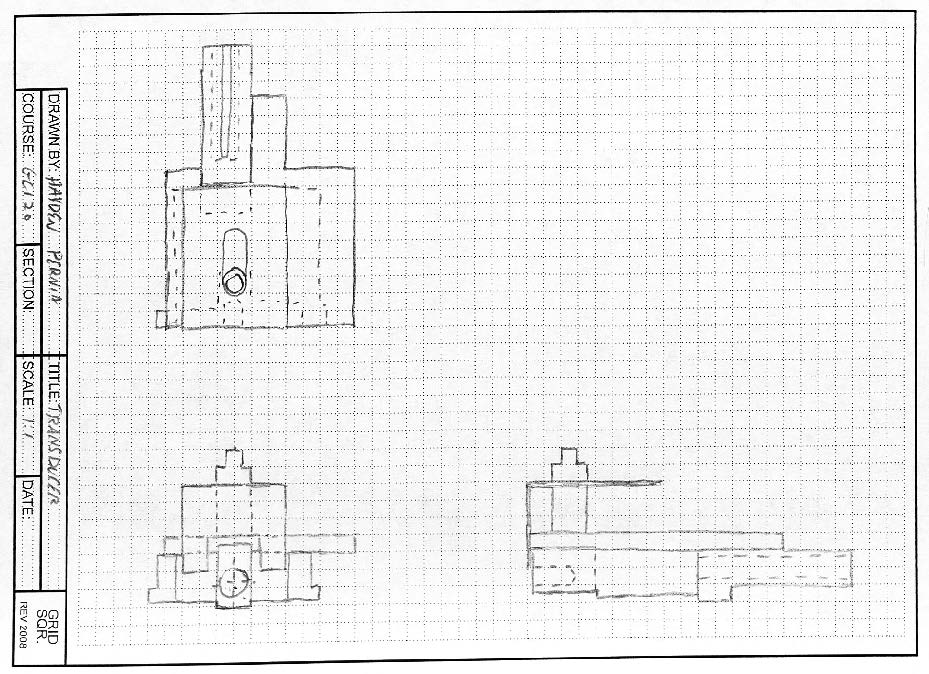 DRAWN BY: HAYDEN
TITLE: TRANSDUCER
COURSE:
SECTION:
SCALE: 1:1
DATE:
GRID
SQR.
REV 2008